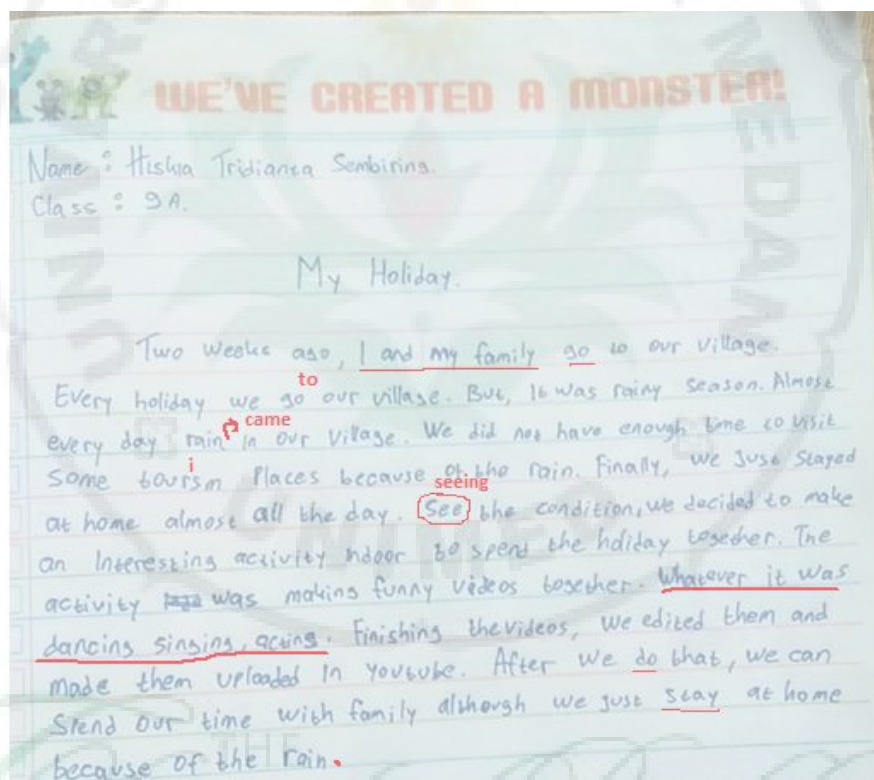 WE'VE CREATED A MONSTER!
Name : Hiskia Tridianta Sembiring.
Class : 9A.
My Holiday.
Two weeks ago, I and my family go to our village.
to
Every holiday we go our village. But, It was rainy season. Almost
came
every day rain in our village. We did not have enough time to visit
i
Some toursm Places because of the rain. Finally, we Just Stayed
seeing
at home almost all the day. See the condition, we decided to make
an Interesting activity indoor to spend the holiday together. The
activity was making funny videos together. Whatever it was
dancing singing, acting. Finishing the videos, we edited them and
made them uploaded in youtube. After we do that, we can
Spend our time with family although we Just stay at home
because of the rain.
UNIVERS MEDAN
UNIMED
THE